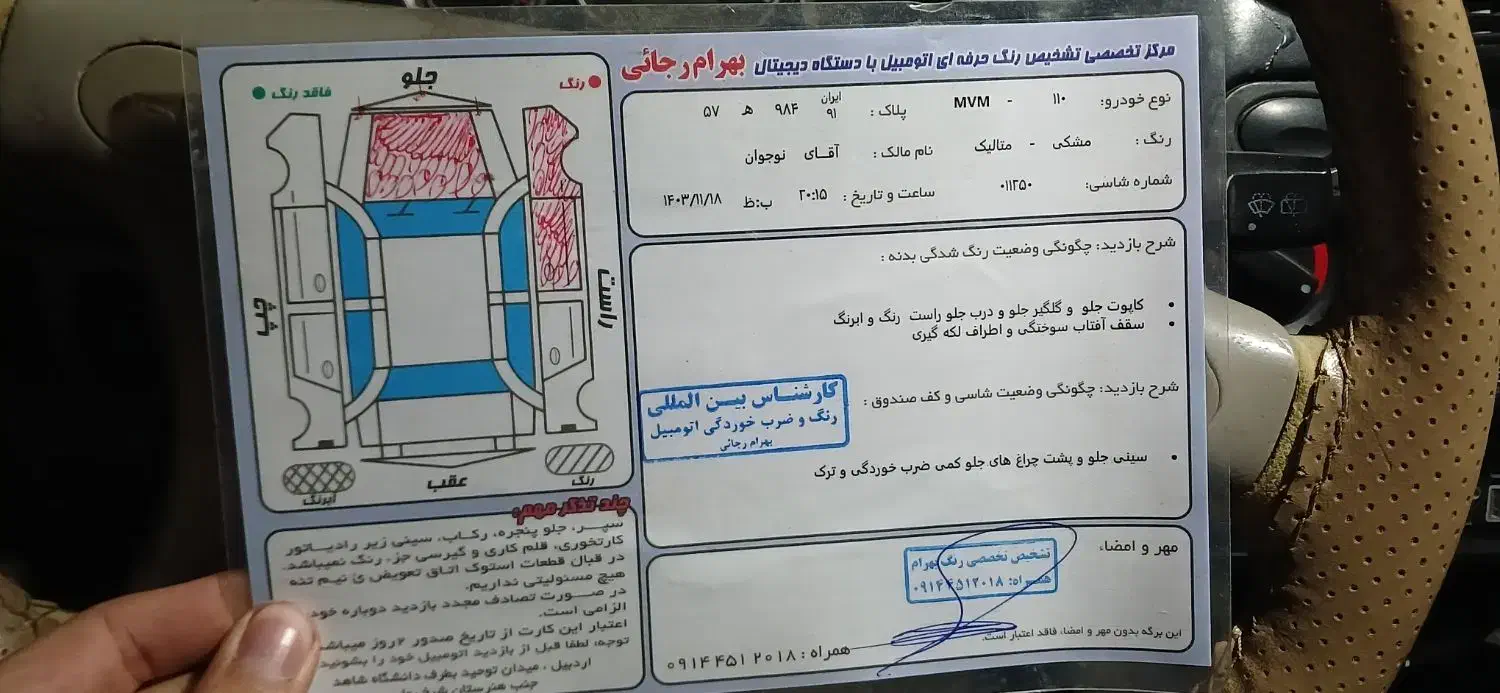 مرکز تخصصی تشخیص رنگ حرفه ای اتومبیل با دستگاه دیجیتال بهرام رجائی
نوع خودرو: ۱۱۰ - MVM پلاک : ایران ۹۱ ۹۸۴ هـ ۵۷
رنگ : مشکی - متالیک نام مالک : آقـــای نوجوان
شماره شاسی: ۰۱۱۲۵۰ ساعت و تاریخ : ۲۰:۱۵ ب:ظ ۱۴۰۳/۱۱/۱۸
شرح بازدید: چگونگی وضعیت رنگ شدگی بدنه :
• کاپوت جلو و گلگیر جلو و درب جلو راست رنگ و ابرنگ
• سقف آفتاب سوختگی و اطراف لکه گیری
شرح بازدید: چگونگی وضعیت شاسی و کف صندوق :
کارشناس بین المللی
رنگ و ضرب خوردگی اتومبیل
بهرام رجائی
• سینی جلو و پشت چراغ های جلو کمی ضرب خوردگی و ترک
مهر و امضاء
تشخیص تخصصی رنگ بهرام
همراه: ۰۹۱۴۴۵۱۲۰۱۸
این برگه بدون مهر و امضا، فاقد اعتبار است.
همراه : ۰۹۱۴ ۴۵۱ ۲۰۱۸
رنگ
فاقد رنگ
جلو
راست
چپ
عقب
رنگ
آبرنگ
چند تذکر مهم:
سپــر، جلو پنجره، رکاب، سینی زیر رادیـاتور
کارتخوری، قلم کاری و گیرسی جزء رنگ نمیباشد.
در قبال قطعات استوک اتاق تعویض ی نیـم تنه
هیچ مسئولیتی نداریم.
در صــورت تصادف مجدد بازدید دوباره خود
الزامی است.
اعتبار این کارت از تاریخ صدور ۲روز میباشد
توجه، لطفا قبل از بازدید اتومبیل خود را بشوئید
اردبیل ، میدان توحید بطرف دانشگاه شاهد
جنب هنرستان